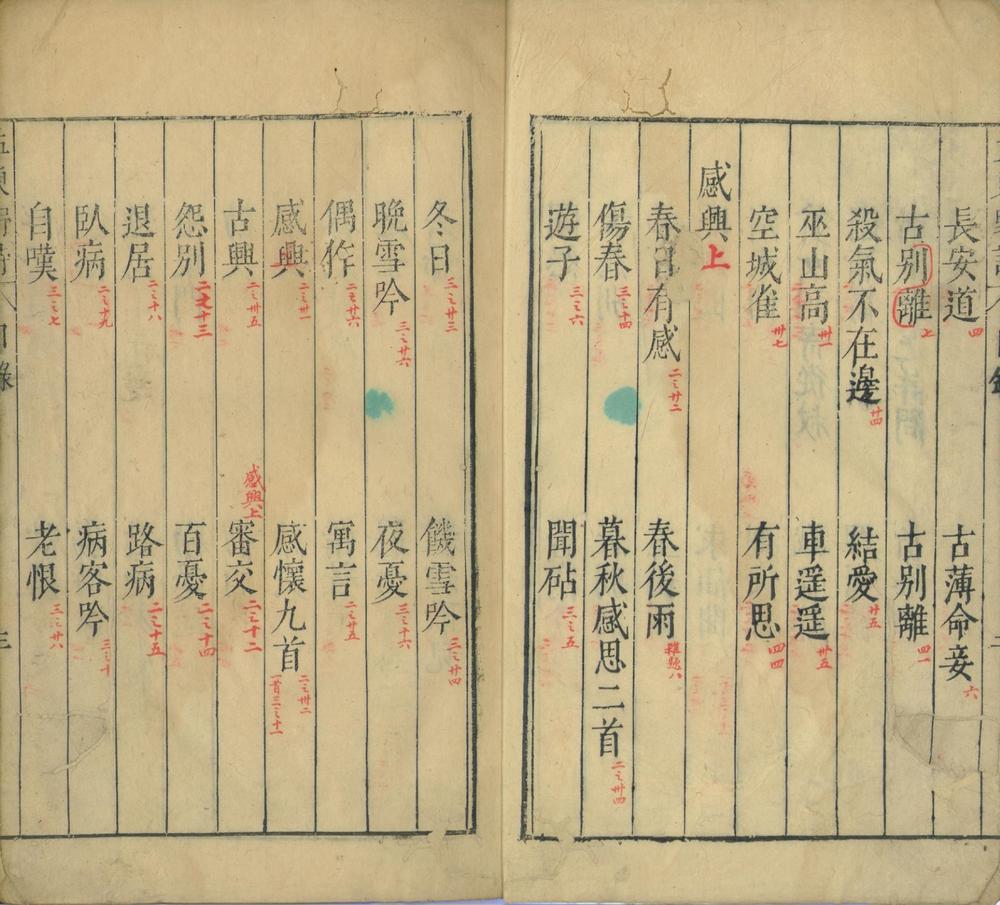 長安道 四 古薄命妾 六
古別離 七 古別離 四一
殺氣不在邊 廿四 結愛 廿五
巫山高 卅一 車遥遥 卅五
空城雀 卅七 有所思 四四
感興上
春日有感 二之廿二 春後雨 雜題八
傷春 三之十四 暮秋感思二首 二之卅四
遊子 三之六 聞砧 三之五
冬日 三之廿三 饑雪吟 三之廿四
晩雪吟 三之廿六 夜憂 三之十六
偶作 二之廿六 寓言 二之廿五
感興 二之廿一 感懷九首 二之卅二 一首三之十一
感興上
古興 二之卅五 審交 二之十二
怨別 二之十三 百憂 二之十四
退居 二之十八 路病 二之十五
臥病 二之十九 病客吟 三之十
自嘆 三之七 老恨 三之廿八